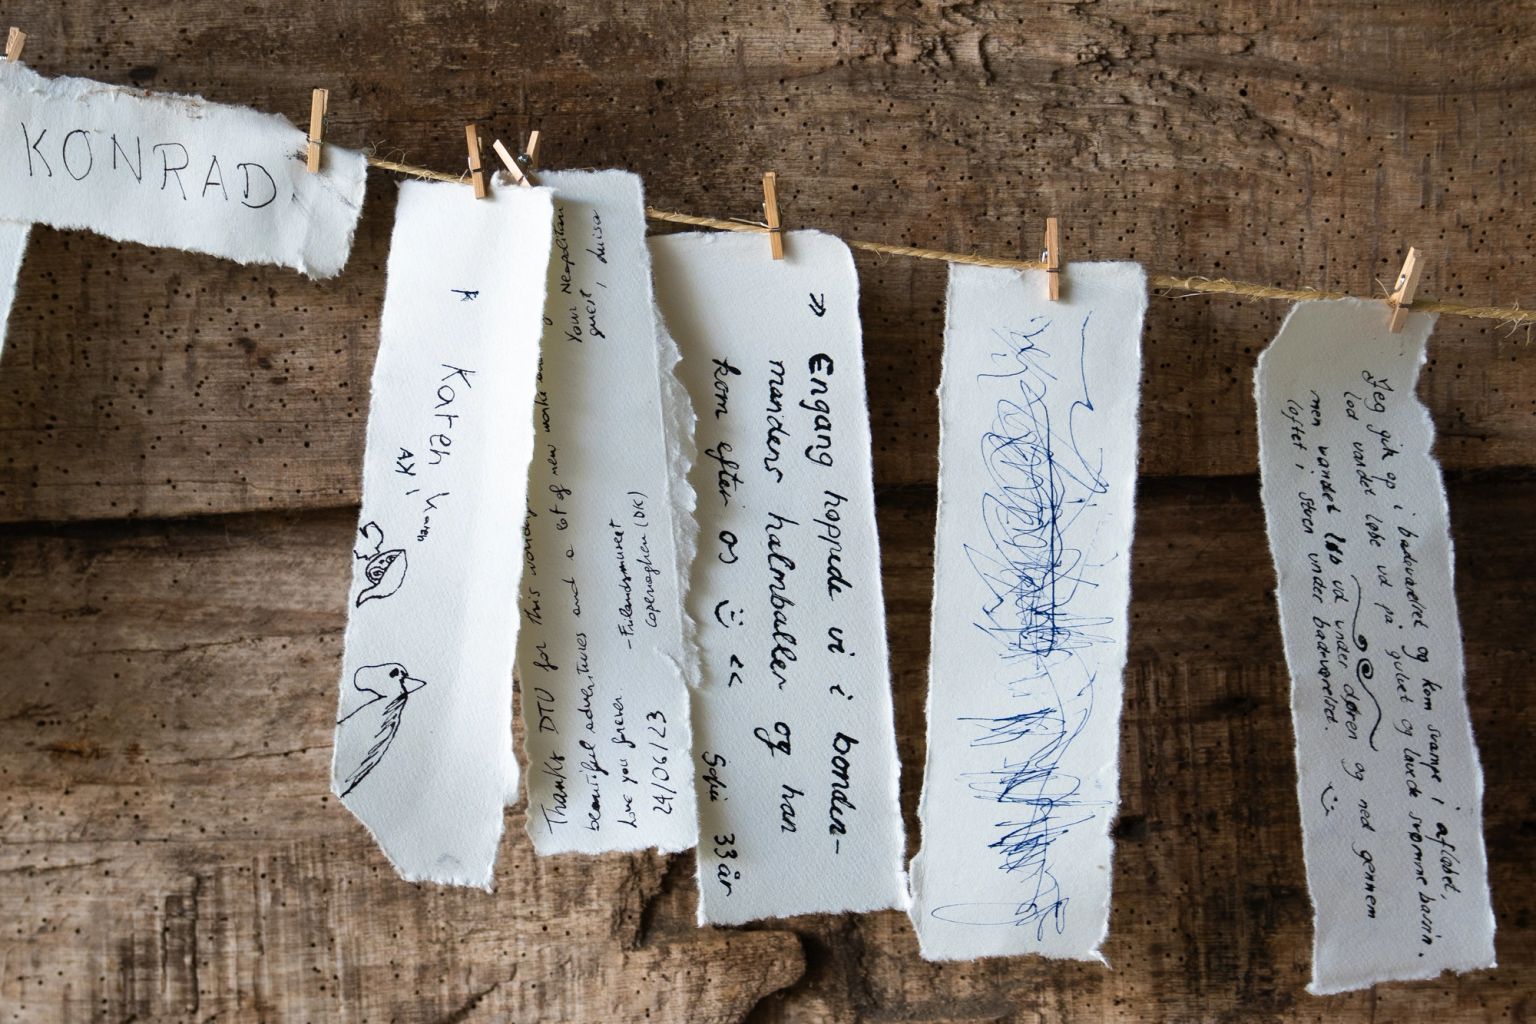 KONRAD
Karen K
Karen
AK
Your Neapolitan
guest, Luisa
Thanks DTU for this
beautiful adventures and a lot of new
Love you forever
24/06/23
-Frilandsmuseet
Copenaghen (DK)
» Engang hoppede vi i bonden-
mandens halmballer og han
kom efter os «
Sofie 33 år
Jeg gik op i badeværelset og kom svampe i afløbet,
lod vandet løbe ud på gulvet og lavede svømmebassin.
men vandet løb ud under døren og ned gennem
loftet i stuen under badeværelset.